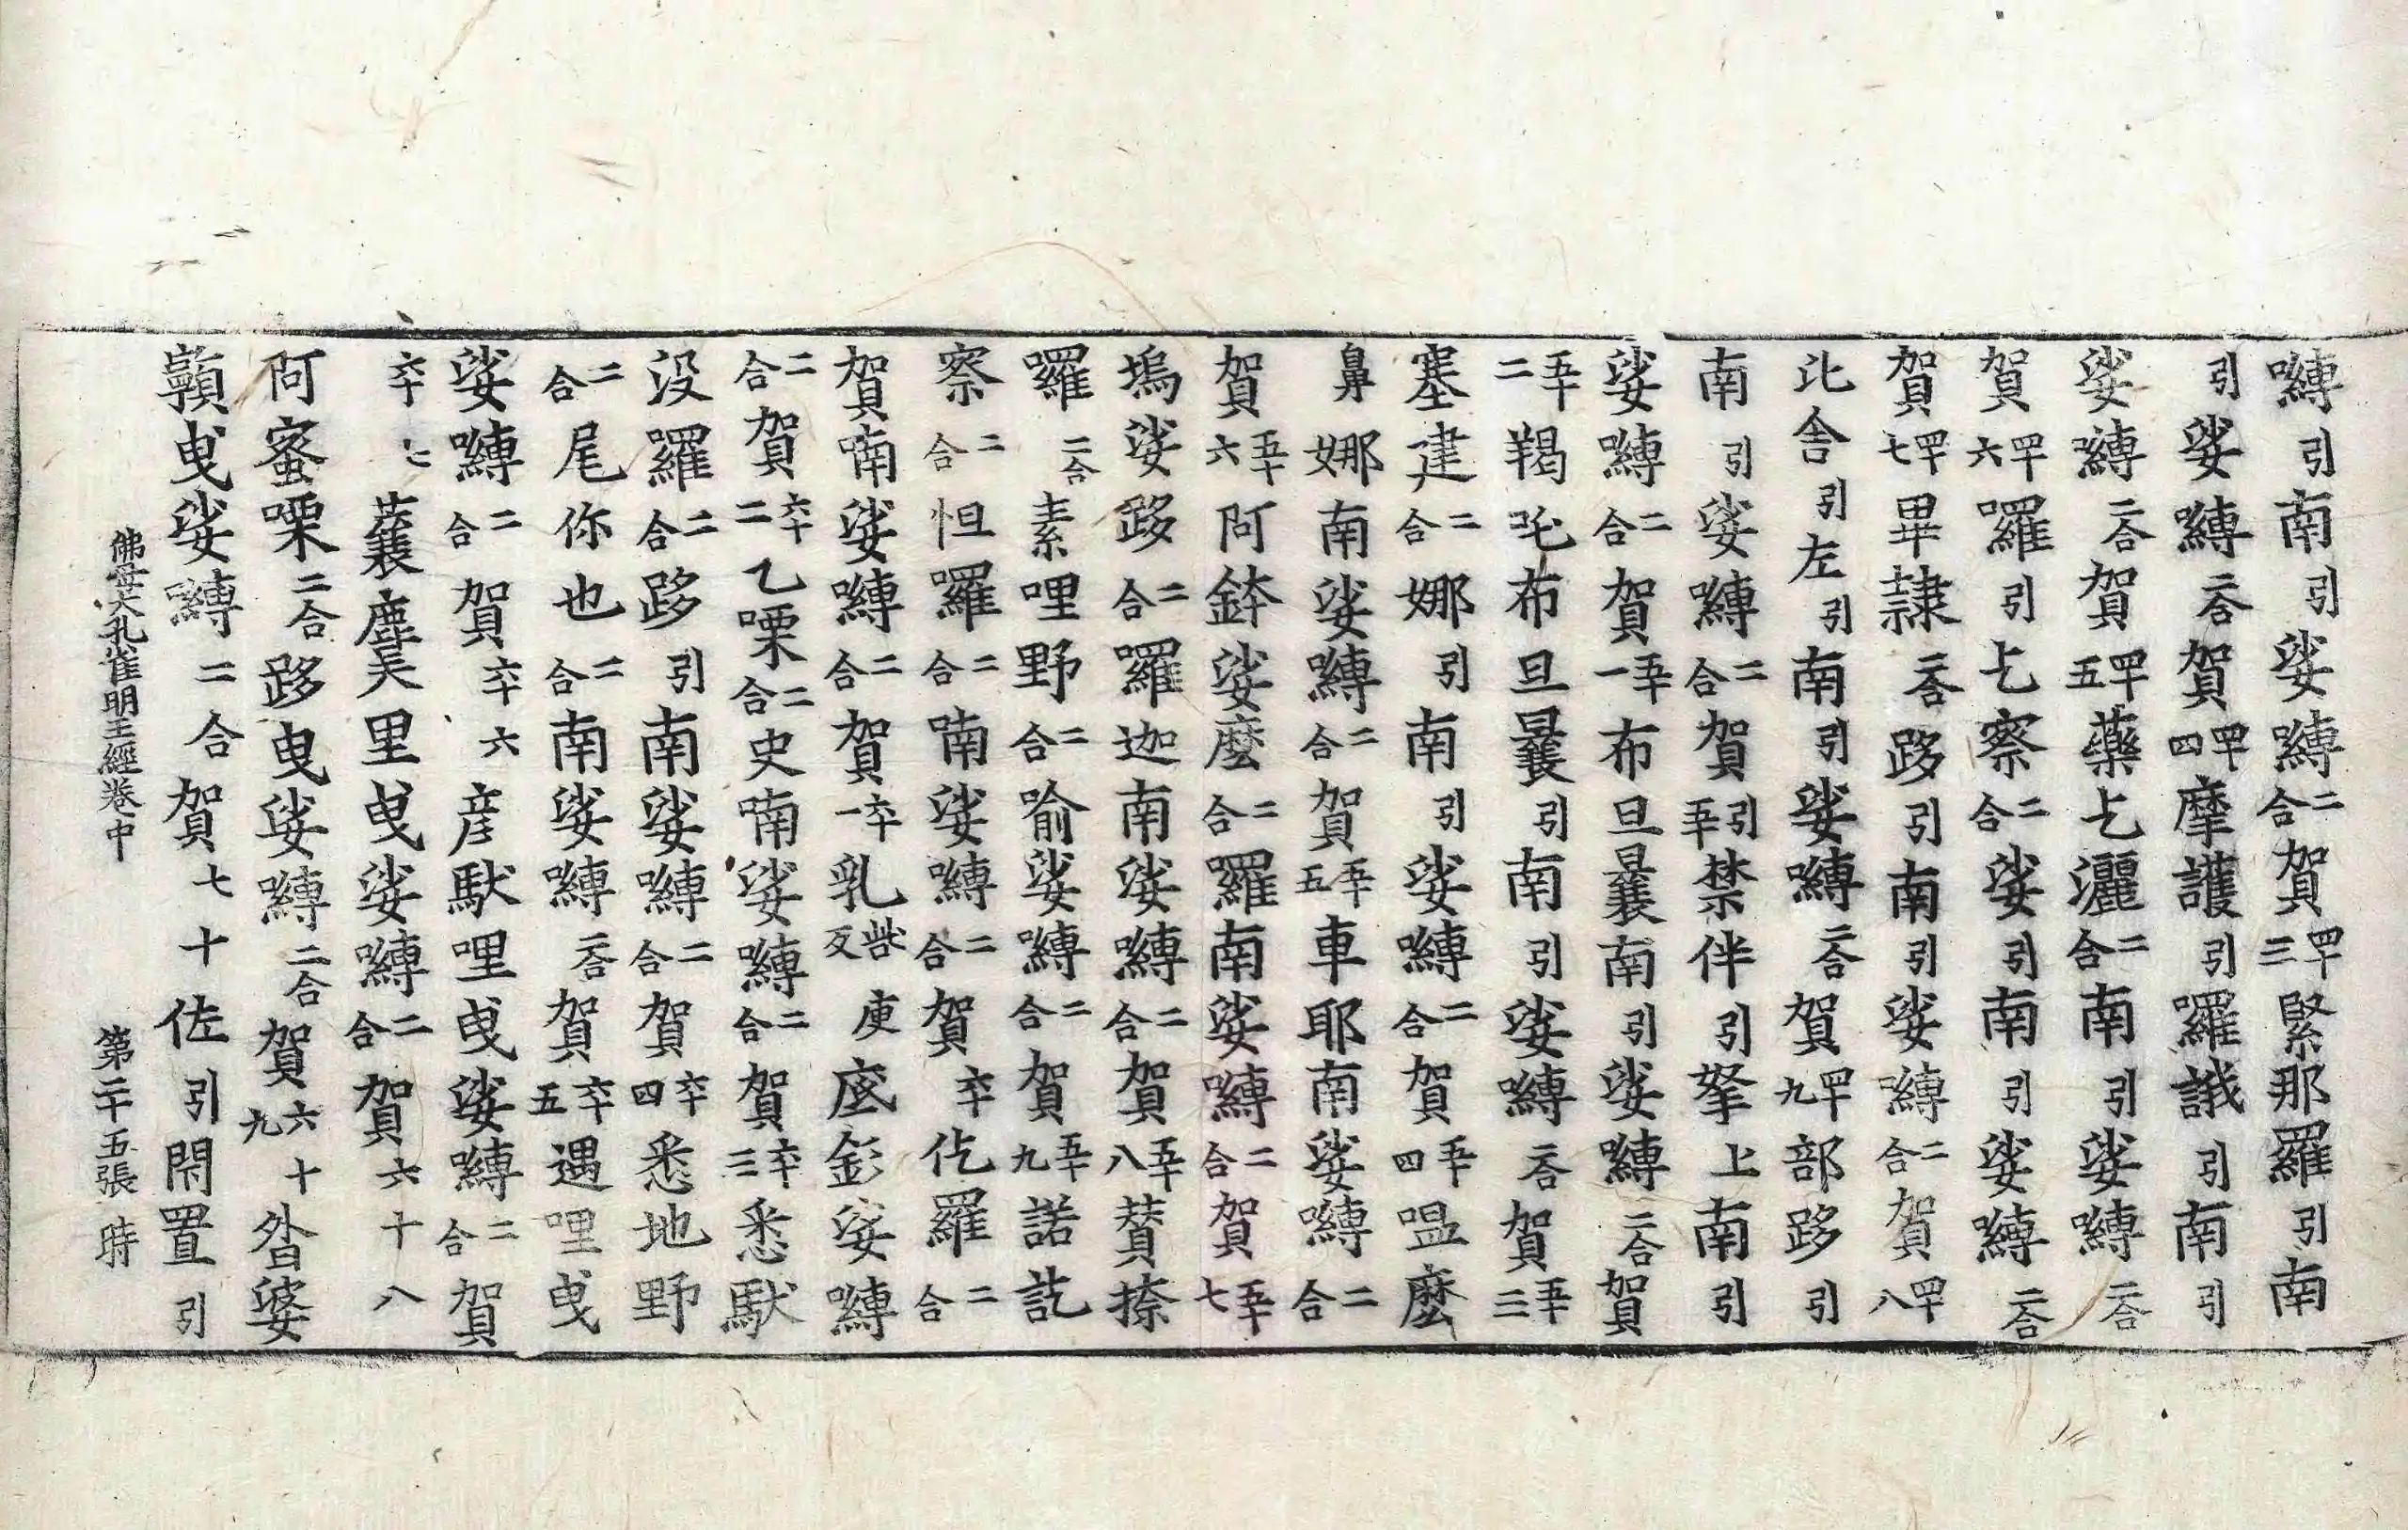 嚩引南引娑嚩二合賀四十三緊那羅引南
引娑嚩二合賀四十四摩護引羅誐引南引
娑嚩二合賀四十五藥乞灑二合南引娑嚩二合
賀四十六羅引乞察二合娑引南引娑嚩二合
賀四十七畢隷二合跢引南引娑嚩二合賀四十八
比舍引左引南引娑嚩二合賀四十九部跢引
南引娑嚩二合賀引五十禁伴引拏上南引
娑嚩二合賀五十一布旦曩南引娑嚩二合賀
五十二羯吒布旦曩引南引娑嚩二合賀五十三
塞建二合娜引南引娑嚩二合賀五十四嗢麽
鼻娜南娑嚩二合賀五十五車耶南娑嚩二合
賀五十六阿鉢娑麽二合羅南娑嚩二合賀五十七
塢娑跢二合羅迦南娑嚩二合賀五十八賛捺
羅二合素哩野二合喻娑嚩二合賀五十九諾訖
察二合怛羅二合喃娑嚩二合賀六十仡羅二合
賀喃娑嚩二合賀六十一乳庾底釤娑嚩
二合賀六十二乙㗚二合史喃娑嚩二合賀六十三悉馱
没羅二合跢引南娑嚩二合賀六十四悉地野
二合尾你也二合南娑嚩二合賀六十五遇哩曳
娑嚩二合賀六十六彦馱哩曳娑嚩二合賀
六十七蘘麌里曳娑嚩二合賀六十八
阿蜜㗚二合跢曳娑嚩二合賀六十九昝婆
顊曳娑嚩二合賀七十佐引閇置引
佛母大孔雀明王經卷中 第二十五張 時